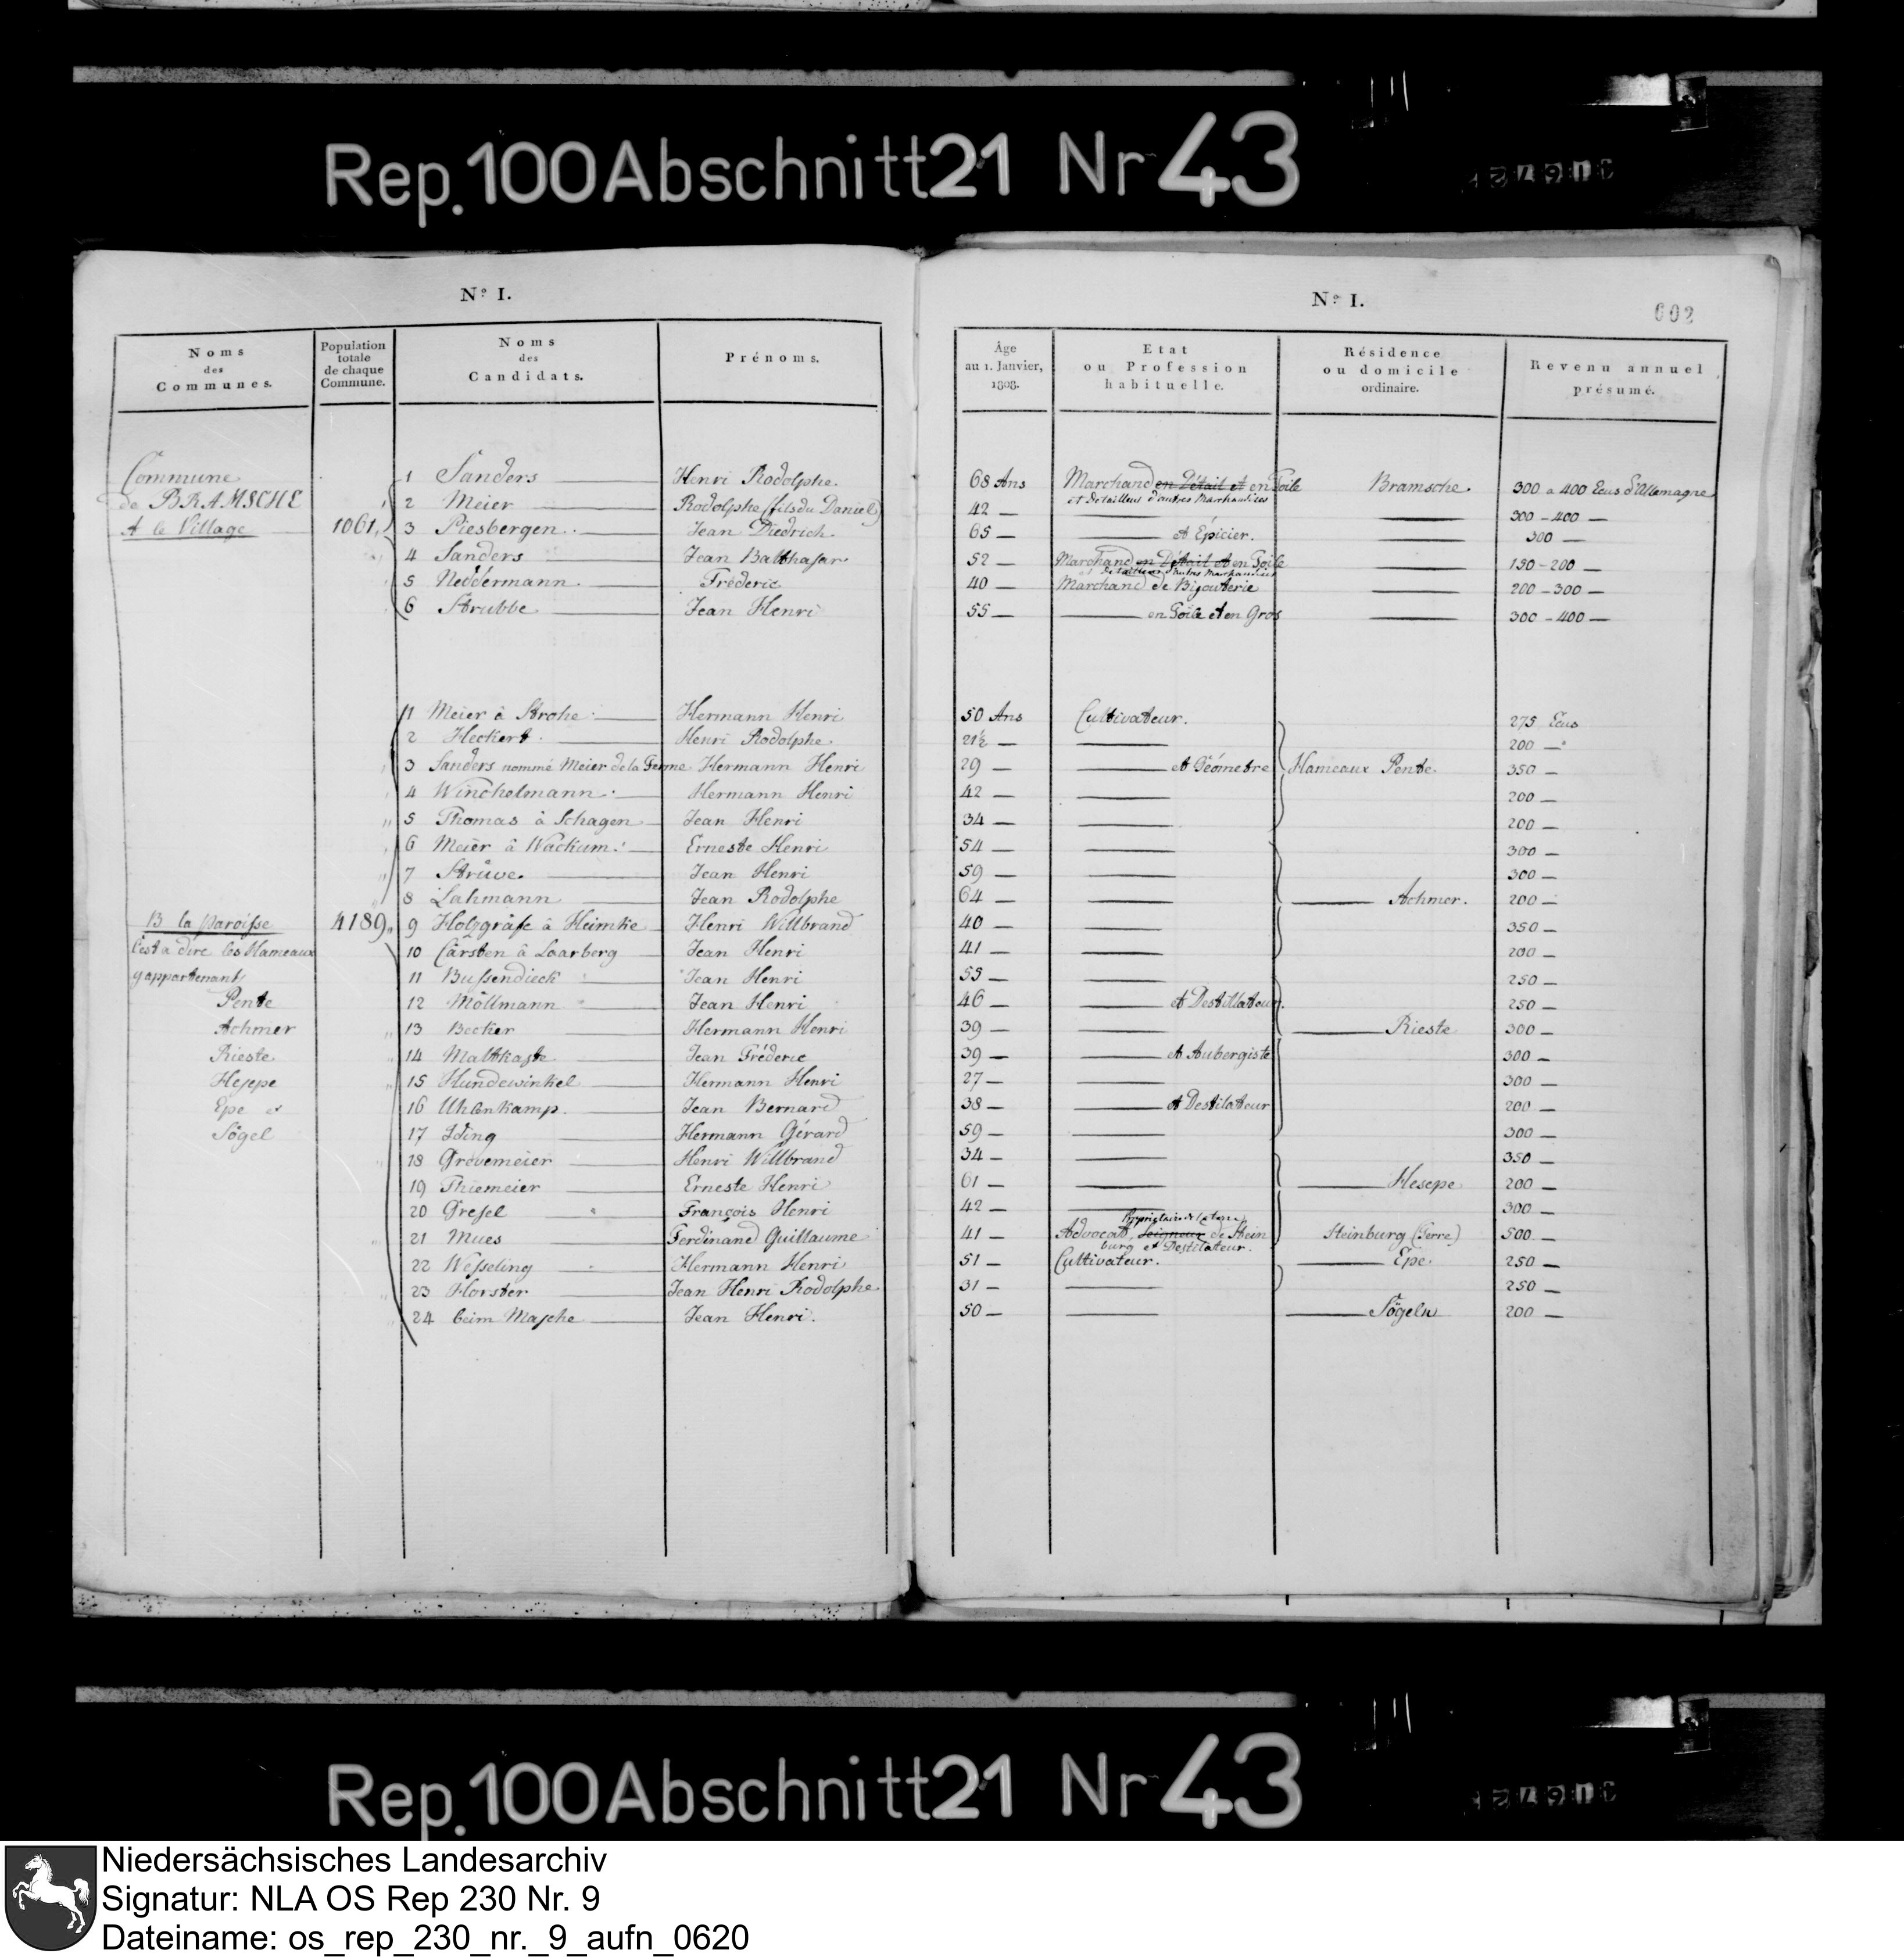 Rep. 100 Abschnitt 21 Nr 43
Nº I.
Noms des Communes.
Population totale de chaque Commune.
Noms des Candidats.
Prénoms.
Commune
de BRAMSCHE
A le Village 1061.
1 Sanders Henri Rodolphe.
2 Meier Rodolphe (fils du Daniel)
3 Piesbergen Jean Diedrich.
4 Sanders Jean Balthasar
5 Neddermann Fréderic
6 Strubbe Jean Henri
1 Meier à Strohe Hermann Henri
2 Heckert Henri Rodolphe
3 Sanders nommé Meier de la Ferme Hermann Henri
4 Winchelmann Hermann Henri
5 Thomas à Schagen Jean Henri
6 Meier à Wackum Erneste Henri
7 Strüve Jean Henri
8 Lahmann Jean Rodolphe
B la paroisse 4189. 9 Holzgräfe à Heimke Henri Willbrand
C'est a dire les Hameaux 10 Cärsten à Loarberg Jean Henri
y appartenant 11 Bussendieck Jean Henri
Pente 12 Möllmann Jean Henri
Achmer 13 Becker Hermann Henri
Rieste 14 Maltkaste Jean Fréderic
Hesepe 15 Hundewinkel Hermann Henri
Epe et 16 Uhlenkamp Jean Bernard
Sögel 17 Iding Hermann Gérard
18 Grevemeier Henri Willbrand
19 Thiemeier Erneste Henri
20 Gresel François Henri
21 Mues Ferdinand Guillaume
22 Wesseling Hermann Henri
23 Horster Jean Henri Rodolphe
24 beim Masche Jean Henri.
Nº I.
002
Âge au 1. Janvier, 1808.
Etat ou Profession habituelle.
Résidence ou domicile ordinaire.
Revenu annuel présumé.
68 Ans Marchand en Détail et en Toile Bramsche. 300 a 400 Ecus d'Allemagne
et Detailleur d'autres Marchandises
42 — 300 - 400 —
65 — et Épicier. 300 —
52 — Marchand en Détail et en Toile 150 - 200 —
Detailleur d'autres Marchandises
40 — Marchand de Bijouterie 200 - 300 —
55 — en Toile et en Gros 300 - 400 —
50 Ans Cultivateur. 275 Ecus
21½ — 200 —
29 — et Géométre Hameaux Pente 350 —
42 — 200 —
34 — 200 —
54 — 300 —
59 — 300 —
64 — Achmer. 200 —
40 — 350 —
41 — 200 —
55 — 250 —
46 — et Destillateur. 250 —
39 — Rieste 300 —
39 — et Aubergiste 300 —
27 — 300 —
38 — et Destilateur 200 —
59 — 300 —
34 — 350 —
61 — Hesepe 200 —
42 — 300 —
Propriétaire de la terre
41 — Advocat, Seigneur de Stein Steinburg (Terre) 500 —
burg et Destilateur.
51 — Cultivateur. Epe. 250 —
31 — 250 —
50 — Sögeln 200 —
Rep. 100 Abschnitt 21 Nr 43
Niedersächsisches Landesarchiv
Signatur: NLA OS Rep 230 Nr. 9
Dateiname: os_rep_230_nr._9_aufn_0620